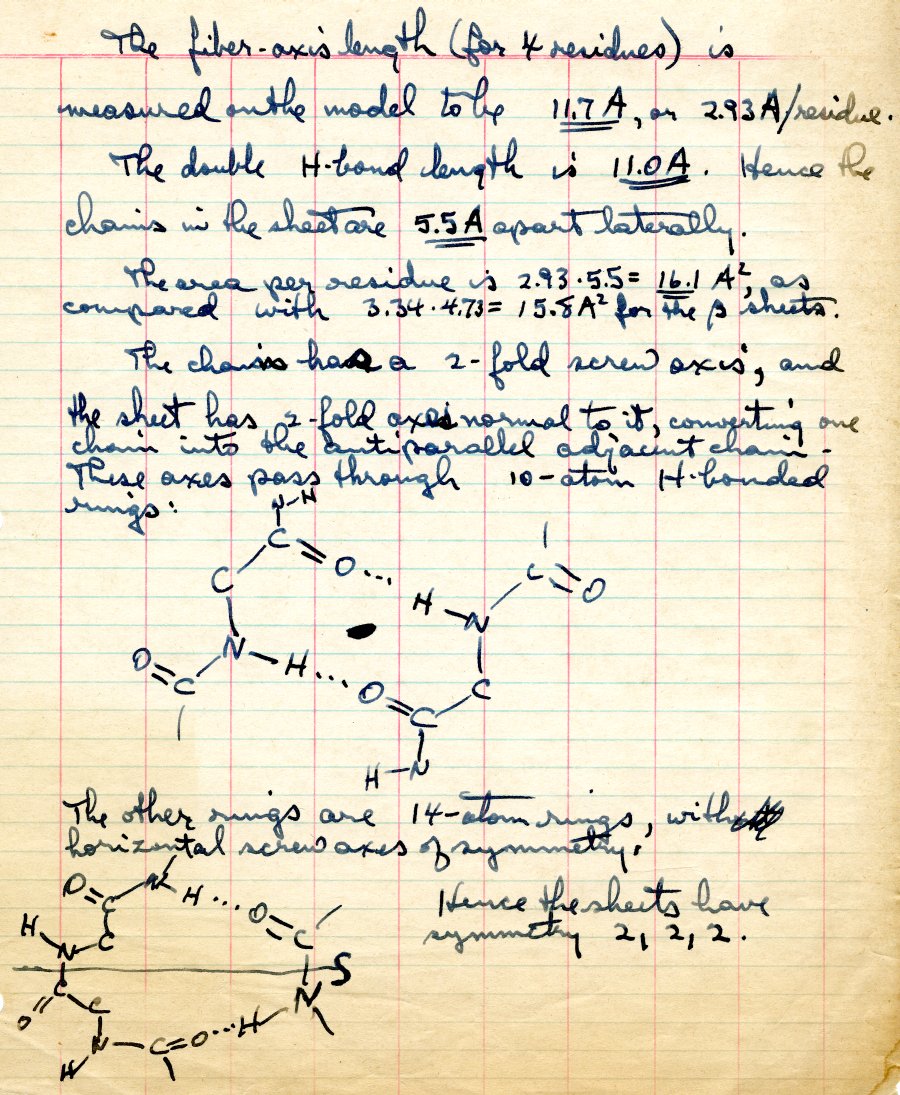 The fiber-axis length (for 4 residues) is
measured on the model to be 11.7 A, or 2.93 A/residue.
The double H-bond length is 11.0 A. Hence the
chains in the sheet are 5.5 A apart laterally.
The area per residue is 2.93·5.5 = 16.1 A², as
compared with 3.34·4.73 = 15.8 A² for the β sheets.
The chains has a 2-fold screw axis, and
the sheet has 2-fold axes normal to it, converting one
chain into the antiparallel adjacent chain.
These axes pass through 10-atom H-bonded
rings:
N-H
C=O...
C
H-N
C=O
N-H...
O=C
O=C
C
H-N
The other rings are 14-atom rings, with
horizontal screw axes of symmetry.
O=C
N
H...
O=C
H
N-C
Hence the sheets have
symmetry 2, 2, 2.
S
C
O
C
N
H
N-C=O...H
H